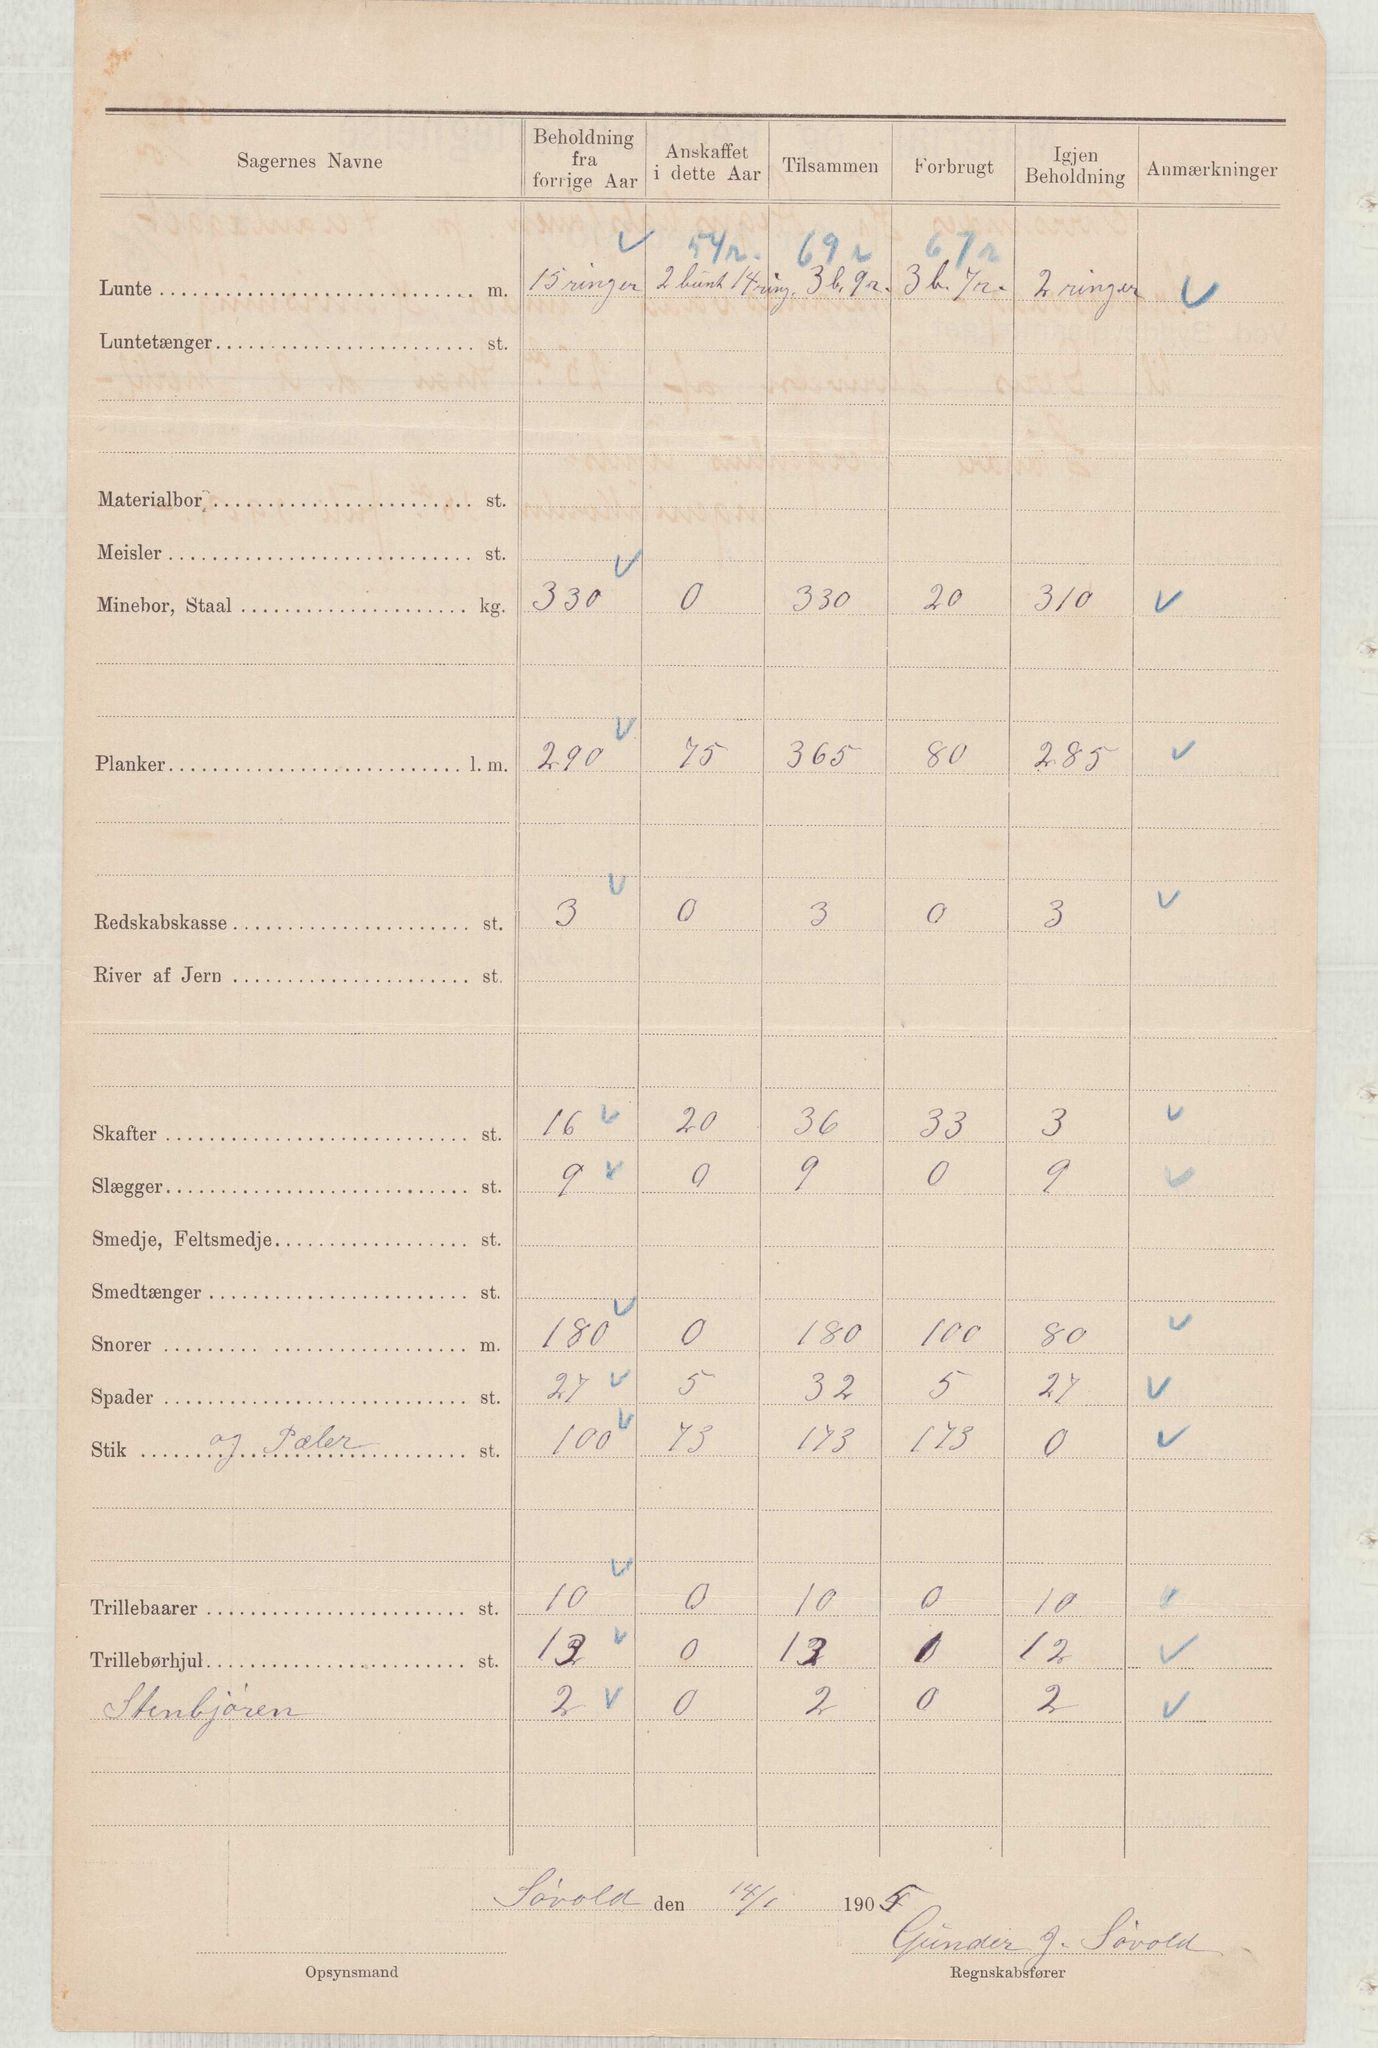 Sagernes Navne | Beholdning fra forrige Aar | Anskaffet i dette Aar | Tilsammen | Forbrugt | Igjen Beholdning | Anmærkninger
54 r. 69 r 67 r
Lunte m. 15 ringer 2 bunt 14 ring. 3 b. 9 r. 3 b. 7 r. 2 ringer
Luntetænger st.
Materialbor st.
Meisler st.
Minebor, Staal kg. 330 0 330 20 310
Planker l. m. 290 75 365 80 285
Redskabskasse st. 3 0 3 0 3
River af Jern st.
Skafter st. 16 20 36 33 3
Slægger st. 9 0 9 0 9
Smedje, Feltsmedje st.
Smedtænger st.
Snorer m. 180 0 180 100 80
Spader st. 27 5 32 5 27
Stik og Pæler st. 100 73 173 173 0
Trillebaarer st. 10 0 10 0 10
Trillebørhjul st. 12 0 12 0 12
Stenbjören 2 0 2 0 2
Sövold den 14/1 1905
Gunder J. Sövold
Opsynsmand Regnskabsfører